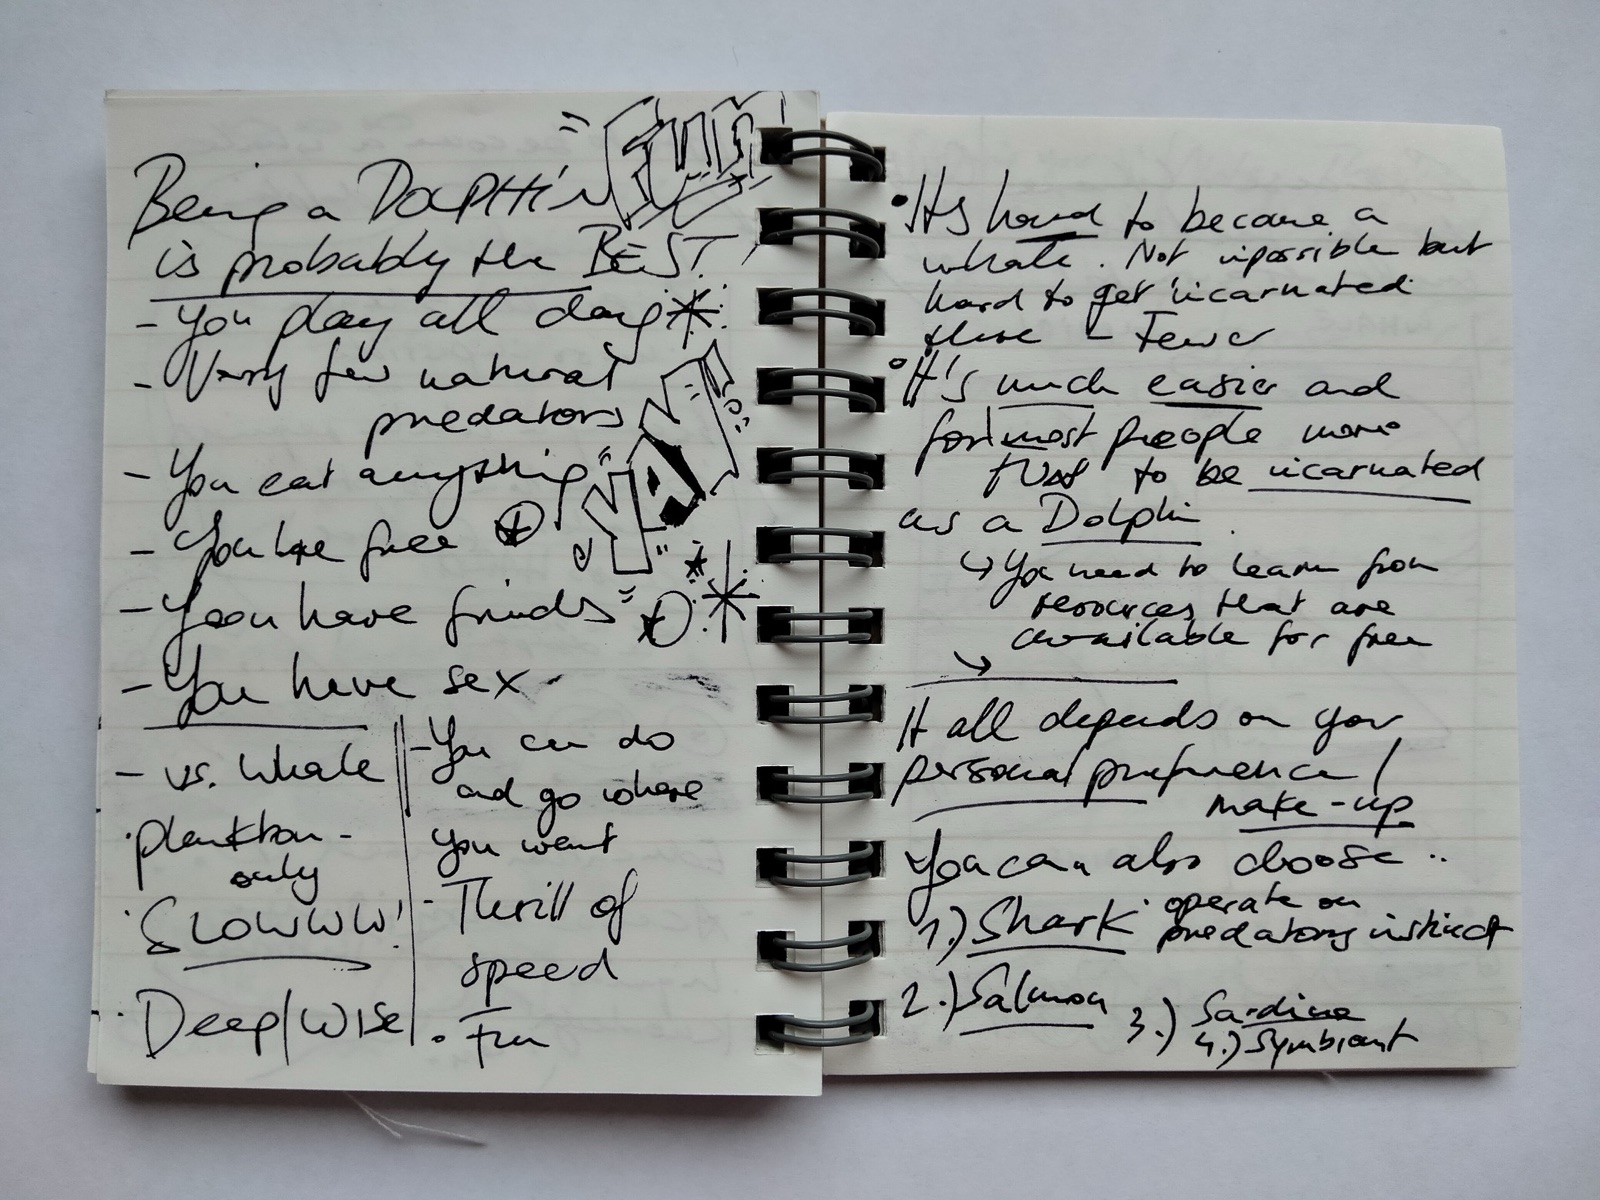 "Fun
Being a DOLPHiN
is probably the BEST!
- You play all day
- Very few natural
predators
- You eat anything
"YAY!
- You are free
- You have friends
- You have sex
- vs. Whale
plankton-
only
SLOWWW!
Deep/WISE
- You can do
and go where
you want
- Thrill of
speed
Fun
• It's hard to become a
whale. Not impossible but
hard to get incarnated
there - Fewer
• It's much easier and
for most people more
fun to be incarnated
as a Dolphin.
↳ You need to learn from
resources that are
available for free
It all depends on your
personal preference/
make-up
You can also choose..
1.) Shark operate on
predatory instinct
2.) Salmon
3.) Sardine
4.) Symbiont